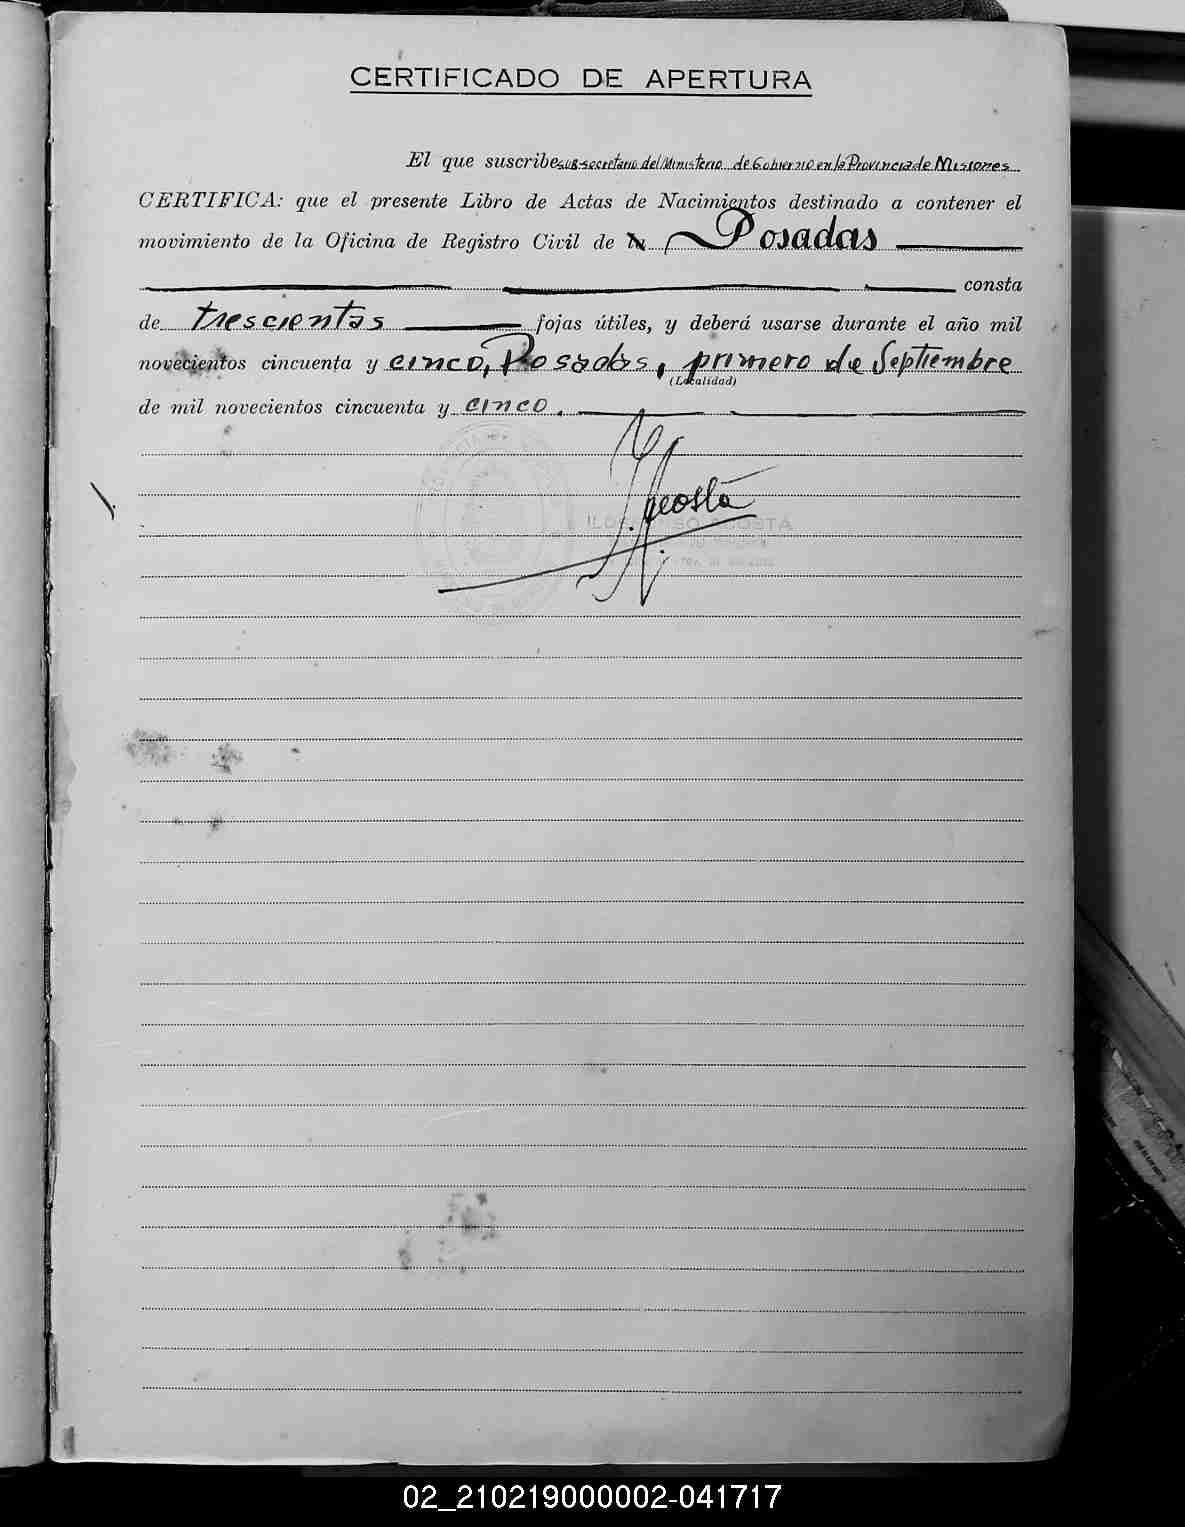 CERTIFICADO DE APERTURA
El que suscribe sub-secretario del Ministerio de Gobierno en la Provincia de Misiones
CERTIFICA: que el presente Libro de Actas de Nacimientos destinado a contener el
movimiento de la Oficina de Registro Civil de Posadas
consta
de trescientas fojas útiles, y deberá usarse durante el año mil
novecientos cincuenta y cinco, Posadas, primero de Septiembre
(Localidad)
de mil novecientos cincuenta y cinco.
Acosta
ACOSTA
02_210219000002-041717